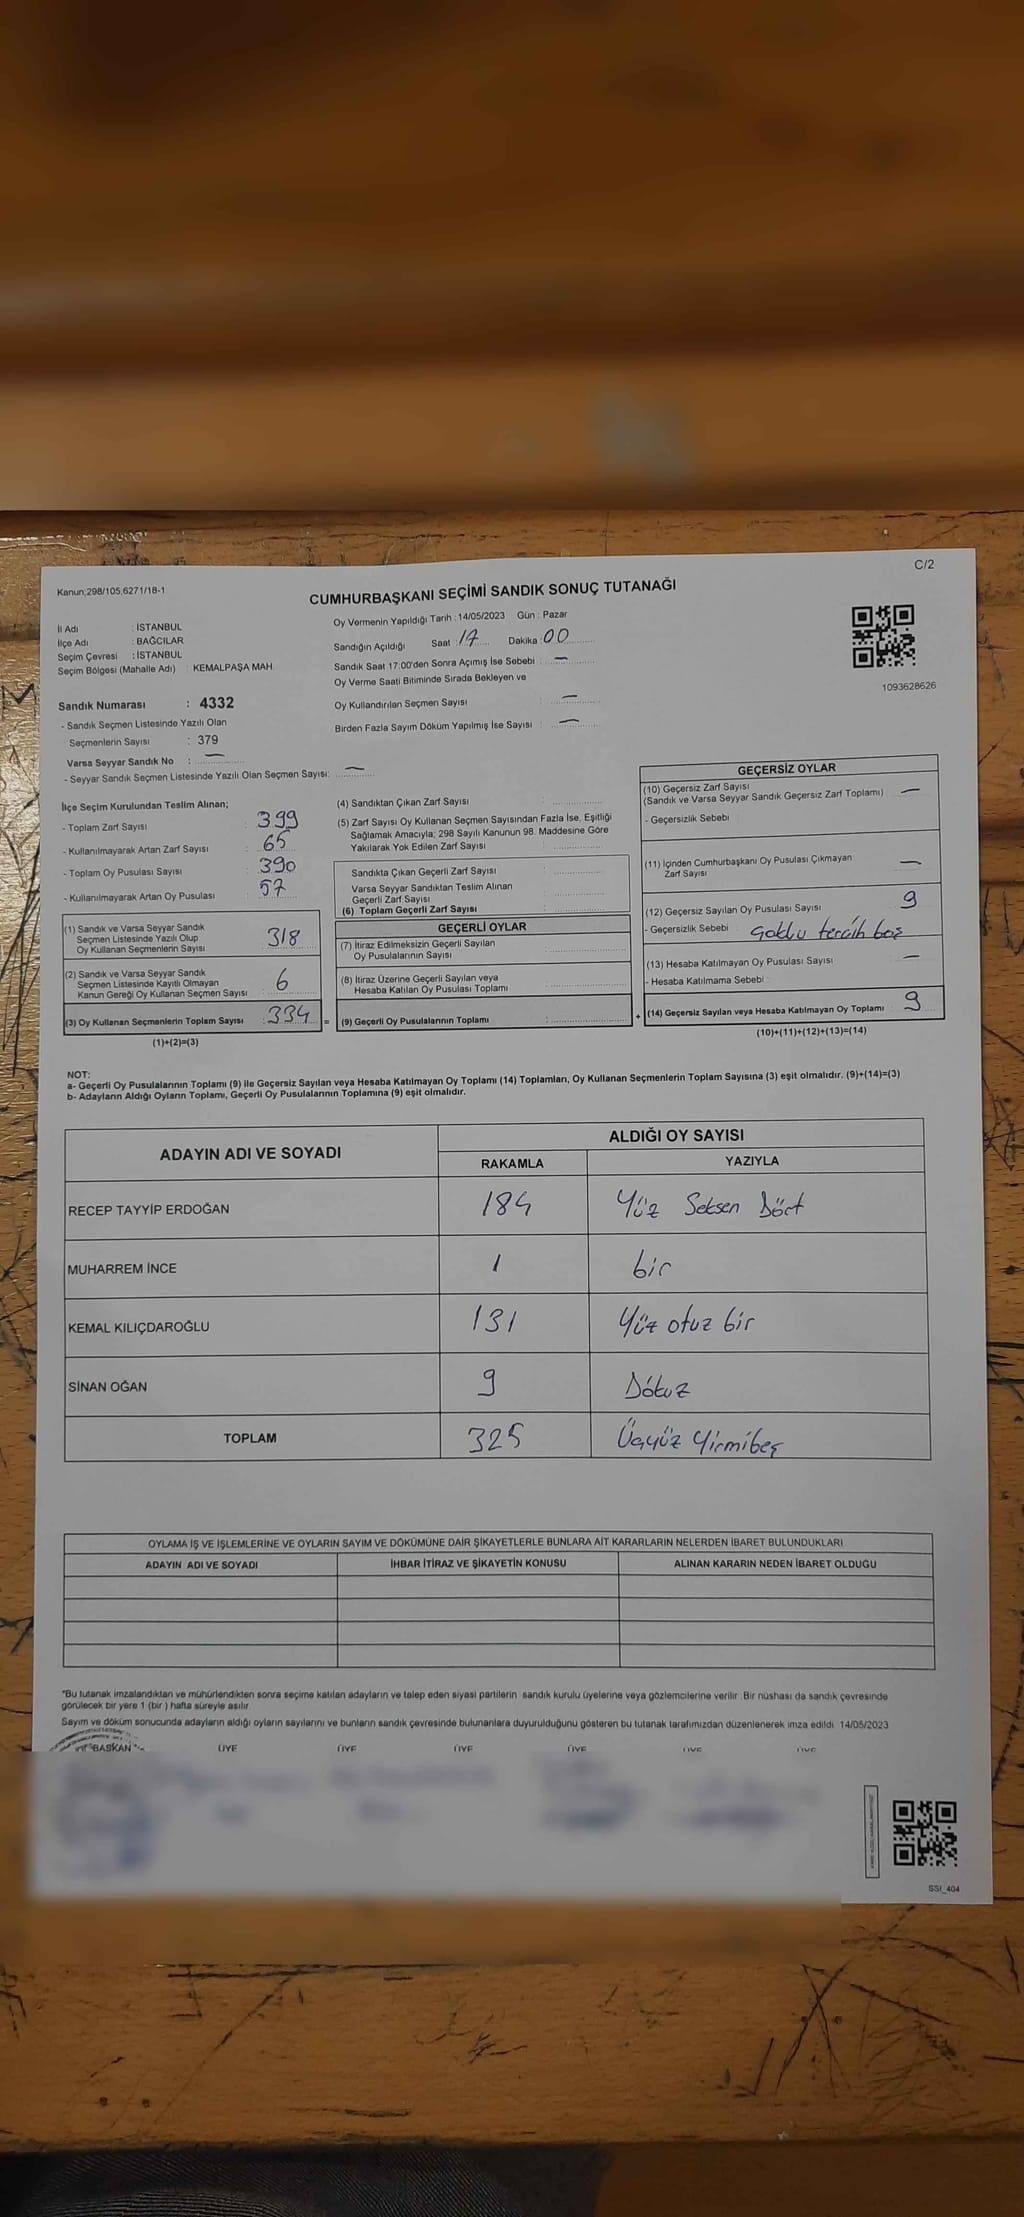 C/2
Kanun;298/105;6271/18-1
CUMHURBAŞKANI SEÇİMİ SANDIK SONUÇ TUTANAĞI
İl Adı : İSTANBUL
İlçe Adı : BAĞCILAR
Seçim Çevresi : İSTANBUL
Seçim Bölgesi (Mahalle Adı) : KEMALPAŞA MAH.
Oy Vermenin Yapıldığı Tarih : 14/05/2023 Gün : Pazar
Sandığın Açıldığı Saat : 17 Dakika : 00
Sandık Saat 17:00'den Sonra Açımış İse Sebebi : —
Oy Verme Saati Bitiminde Sırada Bekleyen ve
Oy Kullandırılan Seçmen Sayısı : —
Birden Fazla Sayım Döküm Yapılmış İse Sayısı : —
1093628626
Sandık Numarası : 4332
- Sandık Seçmen Listesinde Yazılı Olan
Seçmenlerin Sayısı : 379
Varsa Seyyar Sandık No : —
- Seyyar Sandık Seçmen Listesinde Yazılı Olan Seçmen Sayısı: —
İlçe Seçim Kurulundan Teslim Alınan;
- Toplam Zarf Sayısı : 399
- Kullanılmayarak Artan Zarf Sayısı : 65
- Toplam Oy Pusulası Sayısı : 390
- Kullanılmayarak Artan Oy Pusulası : 57
(1) Sandık ve Varsa Seyyar Sandık
Seçmen Listesinde Yazılı Olup
Oy Kullanan Seçmenlerin Sayısı : 318
(2) Sandık ve Varsa Seyyar Sandık
Seçmen Listesinde Kayıtlı Olmayan
Kanun Gereği Oy Kullanan Seçmen Sayısı : 6
(3) Oy Kullanan Seçmenlerin Toplam Sayısı : 334
(1)+(2)=(3)
(4) Sandıktan Çıkan Zarf Sayısı :
(5) Zarf Sayısı Oy Kullanan Seçmen Sayısından Fazla İse, Eşitliği
Sağlamak Amacıyla; 298 Sayılı Kanunun 98. Maddesine Göre
Yakılarak Yok Edilen Zarf Sayısı :
Sandıkta Çıkan Geçerli Zarf Sayısı :
Varsa Seyyar Sandıktan Teslim Alınan
Geçerli Zarf Sayısı :
(6) Toplam Geçerli Zarf Sayısı :
GEÇERLİ OYLAR
(7) İtiraz Edilmeksizin Geçerli Sayılan
Oy Pusulalarının Sayısı :
(8) İtiraz Üzerine Geçerli Sayılan veya
Hesaba Katılan Oy Pusulası Toplamı :
= (9) Geçerli Oy Pusulalarının Toplamı :
GEÇERSİZ OYLAR
(10) Geçersiz Zarf Sayısı
(Sandık ve Varsa Seyyar Sandık Geçersiz Zarf Toplamı) —
- Geçersizlik Sebebi
(11) İçinden Cumhurbaşkanı Oy Pusulası Çıkmayan
Zarf Sayısı —
(12) Geçersiz Sayılan Oy Pusulası Sayısı 9
- Geçersizlik Sebebi tercih boş
(13) Hesaba Katılmayan Oy Pusulası Sayısı —
- Hesaba Katılmama Sebebi :
+ (14) Geçersiz Sayılan veya Hesaba Katılmayan Oy Toplamı : 9
(10)+(11)+(12)+(13)=(14)
NOT:
a- Geçerli Oy Pusulalarının Toplamı (9) ile Geçersiz Sayılan veya Hesaba Katılmayan Oy Toplamı (14) Toplamları, Oy Kullanan Seçmenlerin Toplam Sayısına (3) eşit olmalıdır. (9)+(14)=(3)
b- Adayların Aldığı Oyların Toplamı, Geçerli Oy Pusulalarının Toplamına (9) eşit olmalıdır.
ADAYIN ADI VE SOYADI ALDIĞI OY SAYISI
RAKAMLA YAZIYLA
RECEP TAYYİP ERDOĞAN 184 Yüz Seksen Dört
MUHARREM İNCE 1 bir
KEMAL KILIÇDAROĞLU 131 Yüz otuz bir
SİNAN OĞAN 9 Dokuz
TOPLAM 325 Üçyüz Yirmibeş
OYLAMA İŞ VE İŞLEMLERİNE VE OYLARIN SAYIM VE DÖKÜMÜNE DAİR ŞİKAYETLERLE BUNLARA AİT KARARLARIN NELERDEN İBARET BULUNDUKLARI
ADAYIN ADI VE SOYADI İHBAR İTİRAZ VE ŞİKAYETİN KONUSU ALINAN KARARIN NEDEN İBARET OLDUĞU
*Bu tutanak imzalandıktan ve mühürlendikten sonra seçime katılan adayların ve talep eden siyasi partilerin sandık kurulu üyelerine veya gözlemcilerine verilir. Bir nüshası da sandık çevresinde
görülecek bir yere 1 (bir ) hafta süreyle asılır.
Sayım ve döküm sonucunda adayların aldığı oyların sayılarını ve bunların sandık çevresinde bulunanlara duyurulduğunu gösteren bu tutanak tarafımızdan düzenlenerek imza edildi. 14/05/2023
BAŞKAN ÜYE ÜYE ÜYE ÜYE ÜYE ÜYE
SSI_404